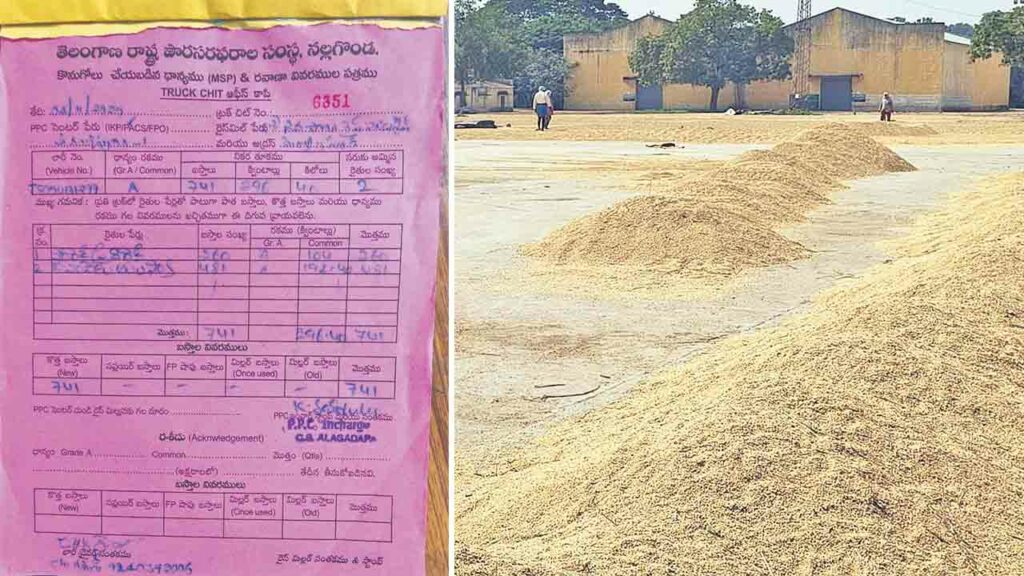 తెలంగాణ రాష్ట్ర పౌరసరఫరాల సంస్థ, నల్లగొండ.
కొనుగోలు చేయబడిన ధాన్యము (MSP) & రవాణా వివరముల పత్రము
TRUCK CHIT ఆఫీస్ కాపి
6351
తేది: ట్రక్ చిట్ నెం.
PPC సెంటర్ పేరు (IKP/PACS/FPO) రైస్‌మిల్ పేరు
మరియు అడ్రస్
లారీ నెం. ధాన్యం రకము నికర తూకము సరుకు అమ్మిన
(Vehicle No.) (Gr A / Common) బస్తాలు క్వింటాల్లు కిలోలు రైతుల సంఖ్య
A 741 296 40 2
ముఖ్య గమనిక : ప్రతి ట్రక్‌లో రైతుల పేర్లతో పాటుగా పాత బస్తాలు, కొత్త బస్తాలు మరియు ధాన్యము
రకము గల వివరములను ఖచ్చితముగా ఈ దిగువ వ్రాయవలెను.
క్ర. నం. రైతుల పేర్లు బస్తాల సంఖ్య రకము (క్వింటాల్లు) మొత్తము
Gr. A Common
1 260 104 260
2 481 192.40 481
మొత్తము: 741 296.40 741
బస్తాల వివరములు
కొత్త బస్తాలు సప్లయిర్ బస్తాలు FP షాపు బస్తాలు మిల్లర్ బస్తాలు మిల్లర్ బస్తాలు మొత్తము
(New) (Once used) (Old)
741 – – – – 741
PPC సెంటర్ నుండి రైస్ మిల్లువరకు గల దూరం PPC
P.P.C. Incharge
C.S. ALAGADAPA
రశీదు (Acknowledgement)
ధాన్యం Grade A Common మొత్తం (Qtls)
(అక్షరాలలో) తేదీన తీసుకోబడినవి.
బస్తాల వివరములు
కొత్త బస్తాలు సప్లయిర్ బస్తాలు FP షాపు బస్తాలు మిల్లర్ బస్తాలు మిల్లర్ బస్తాలు మొత్తము
(New) (Once used) (Old)
లారీ డ్రైవర్ సంతకము రైస్ మిల్లర్ సంతకము & స్టాంప్